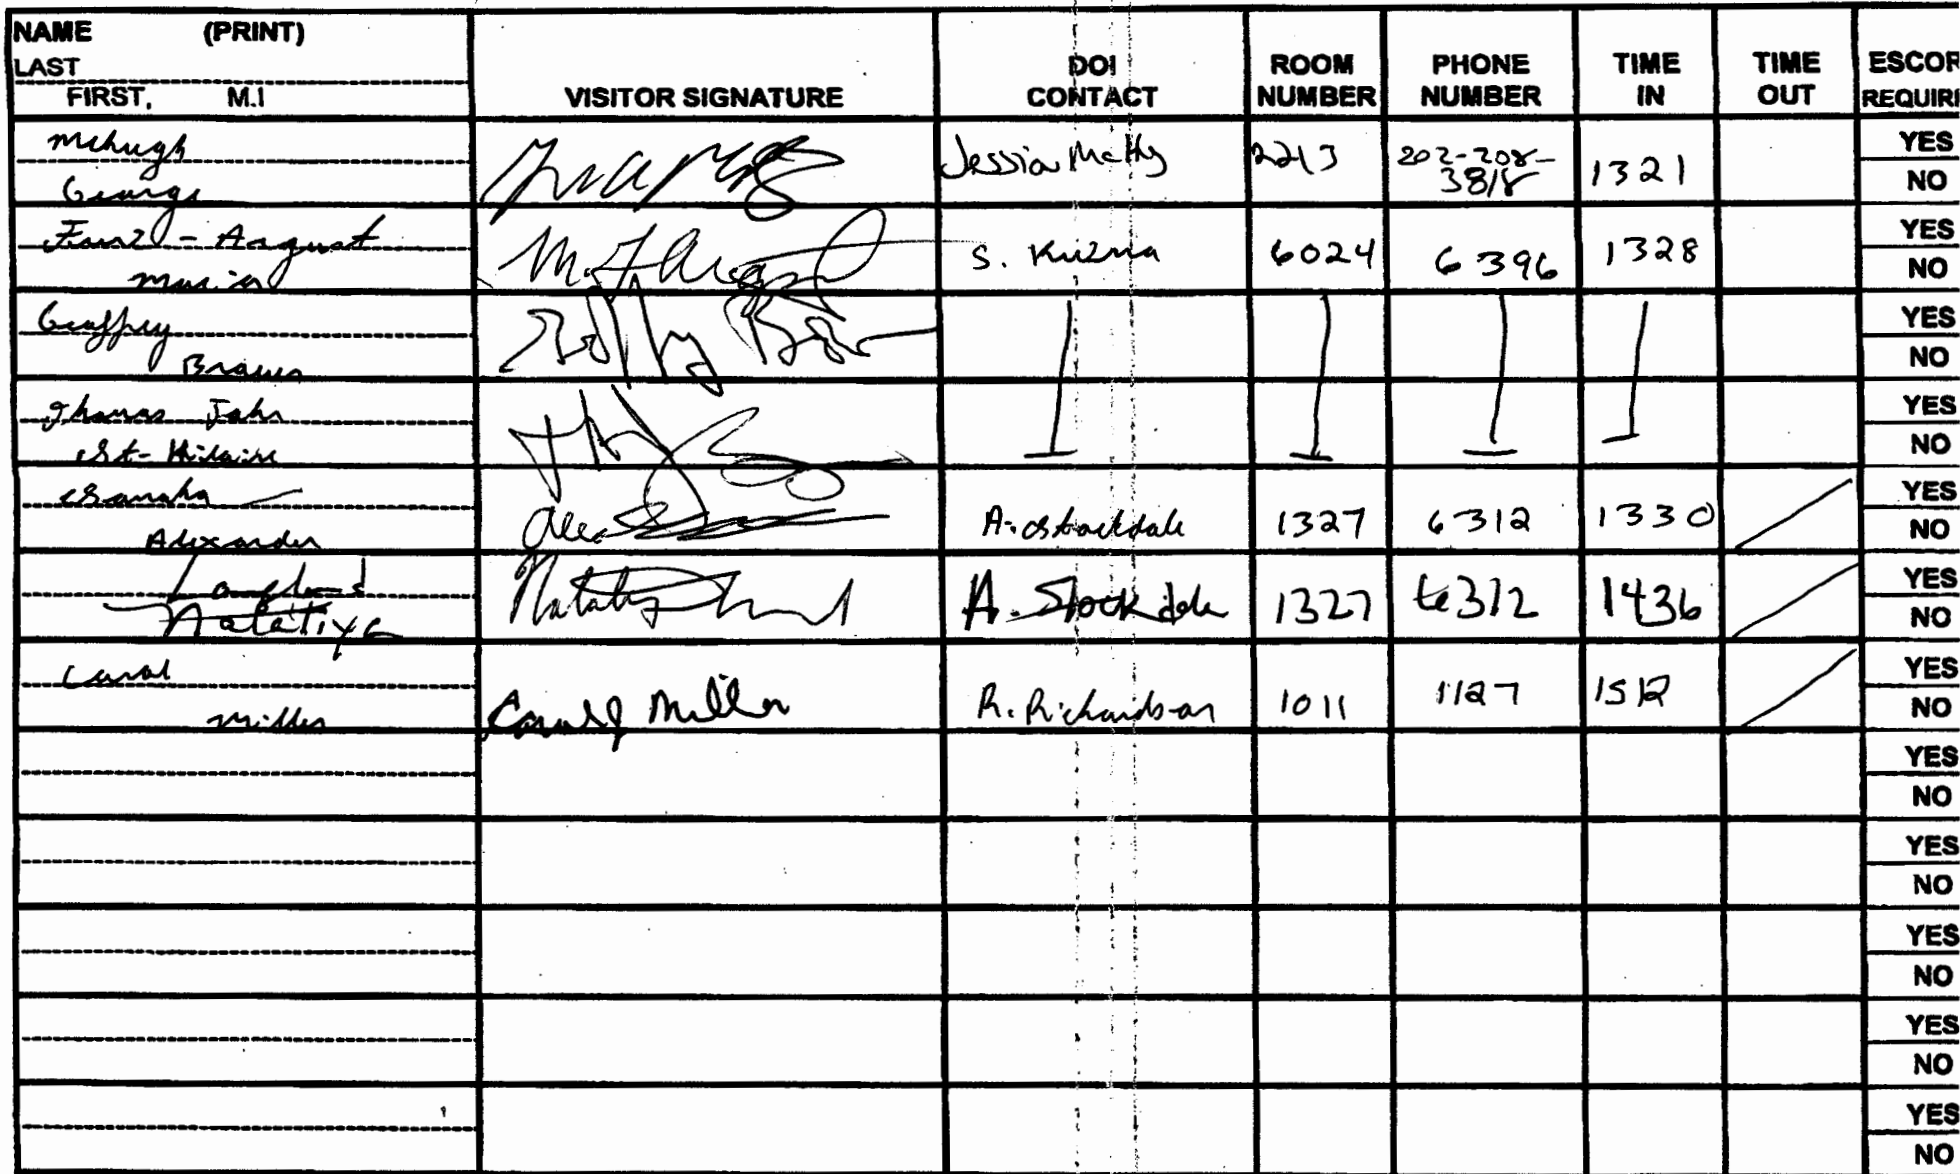 NAME (PRINT)
LAST
FIRST, M.I
VISITOR SIGNATURE
DOI CONTACT
ROOM NUMBER
PHONE NUMBER
TIME IN
TIME OUT
ESCOR
REQUIRE
Mchugh
George
2213
202-208-
3818
1321
YES
NO
Franz - August
Maria
S. Kuzma
6024
6396
1328
YES
NO
Geoffrey
Brown
YES
NO
Thomas John
St-Hilaire
YES
NO
Alexander
A. Stockdale
1327
6312
1330
YES
NO
A. Stockdale
1327
6312
1436
YES
NO
Carol
Miller
Carol Miller
R. Richardson
1011
1127
1512
YES
NO
YES
NO
YES
NO
YES
NO
YES
NO
YES
NO